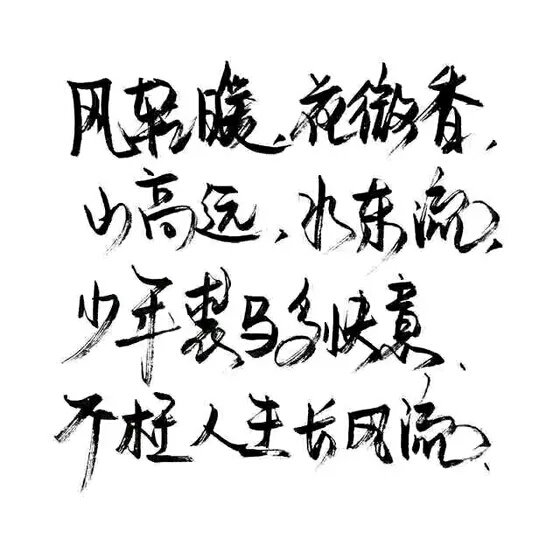 风轻暖、花微香、
山高远、水东流、
少年裘马多快意、
不枉人生长风流、